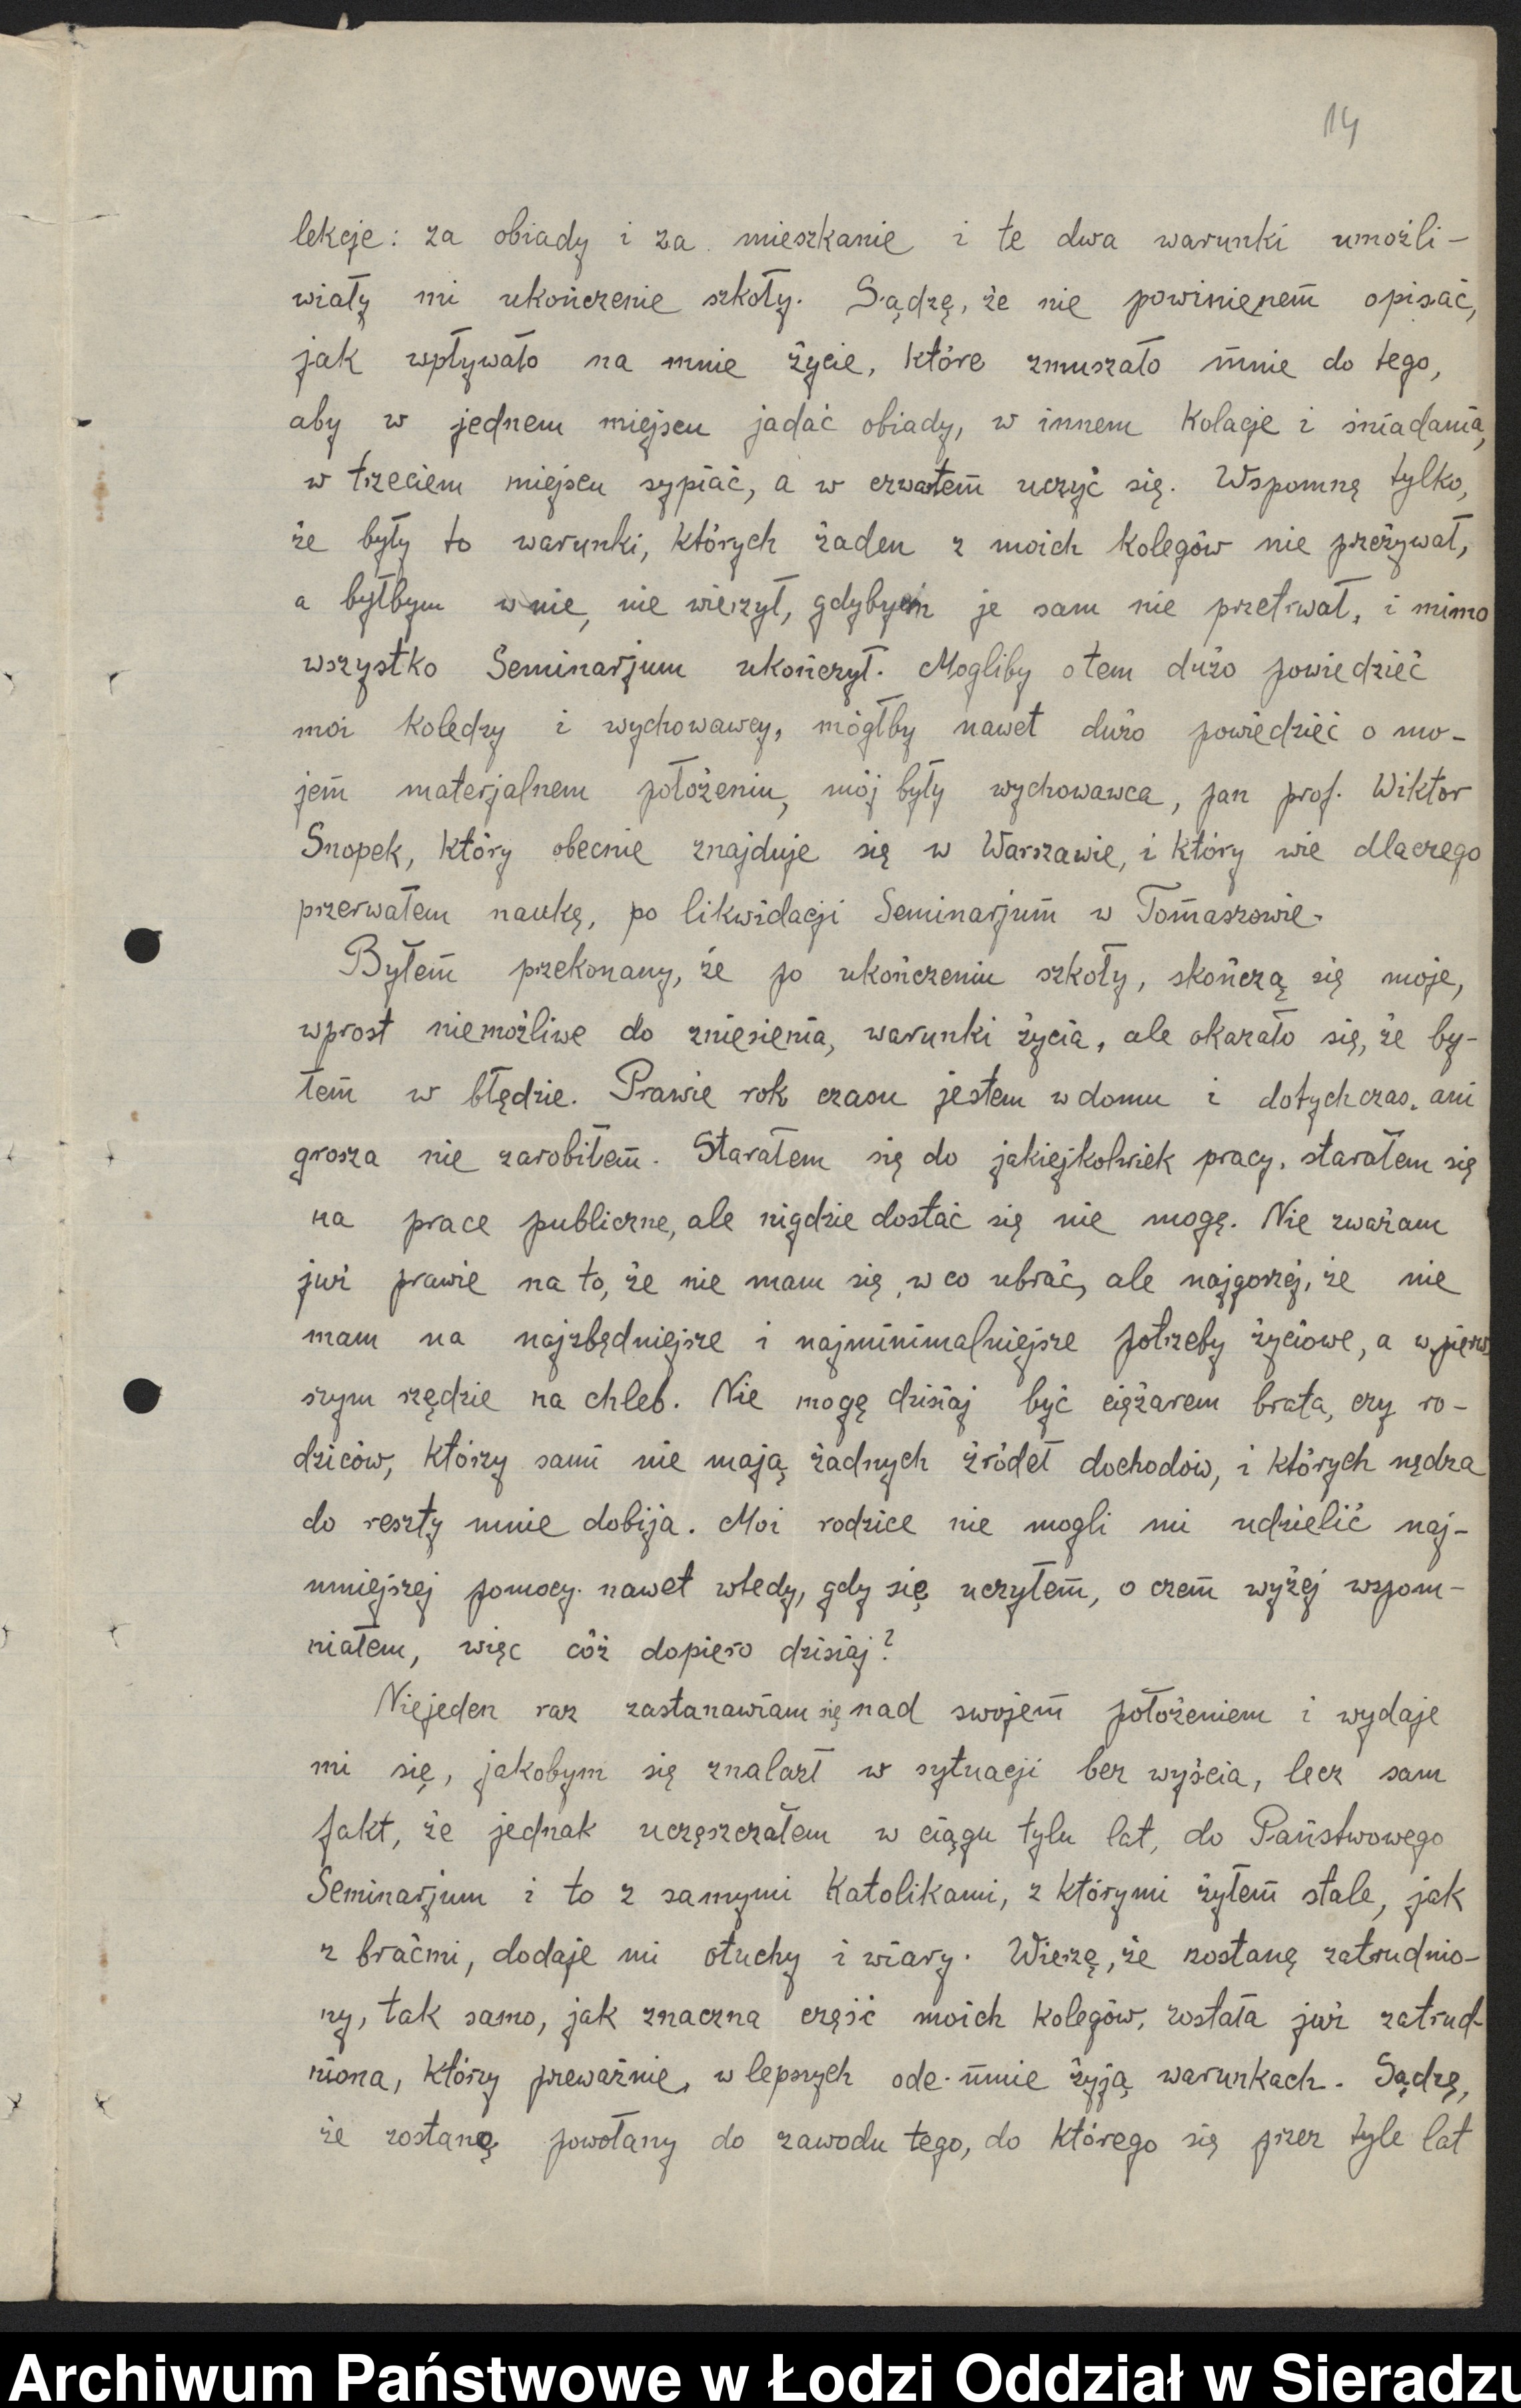 14
lekcje: za obiady i za mieszkanie i te dwa warunki umożli-
wiały mi ukończenie szkoły. Sądzę, że nie powinienem opisać,
jak wpływało na mnie życie, które zmuszało mnie do tego,
aby w jednem miejscu jadać obiady, w innem kolacje i śniadania,
w trzeciem miejscu sypiać, a w czwartem uczyć się. Wspomnę tylko,
że były to warunki, których żaden z moich kolegów nie przeżywał,
a byłbym w nie, nie wierzył, gdybym je sam nie przetrwał, i mimo
wszystko Seminarjum ukończył. Mogliby o tem dużo powiedzieć
moi koledzy i wychowawcy, mógłby nawet dużo powiedzieć o mo-
jem materjalnem położeniu, mój były wychowawca, pan prof. Wiktor
Snopek, który obecnie znajduje się w Warszawie, i który wie dlaczego
przerwałem naukę, po likwidacji Seminarjum w Tomaszowie.
Byłem przekonany, że po ukończeniu szkoły, skończą się moje,
wprost niemożliwe do zniesienia, warunki życia, ale okazało się, że by-
łem w błędzie. Prawie rok czasu jestem w domu i dotychczas, ani
grosza nie zarobiłem. Starałem się do jakiejkolwiek pracy, starałem się
na prace publiczne, ale nigdzie dostać się nie mogę. Nie zważam
już prawie na to, że nie mam się, w co ubrać, ale najgorzej, że nie
mam na najzbędniejsze i najminimalniejsze potrzeby życiowe, a w pierw
szym rzędzie na chleb. Nie mogę dzisiaj być ciężarem brata, czy ro-
dziców, którzy sami nie mają żadnych źródeł dochodów, i których nędza
do reszty mnie dobija. Moi rodzice nie mogli mi udzielić naj-
mniejszej pomocy nawet wtedy, gdy się uczyłem, o czem wyżej wspom-
niałem, więc cóż dopiero dzisiaj?
Niejeden raz zastanawiam się nad swojem położeniem i wydaje
mi się, jakobym się znalazł w sytuacji bez wyjścia, lecz sam
fakt, że jednak uczęszczałem w ciągu tylu lat, do Państwowego
Seminarjum i to z samymi Katolikami, z którymi żyłem stale, jak
z braćmi, dodaje mi otuchy i wiary. Wierzę, że zostanę zatrudnio-
ny, tak samo, jak znaczna część moich kolegów, została już zatrud-
niona, którzy przeważnie, w lepszych ode mnie żyją warunkach. Sądzę,
że zostanę powołany do zawodu tego, do którego się przez tyle lat
Archiwum Państwowe w Łodzi Oddział w Sieradzu